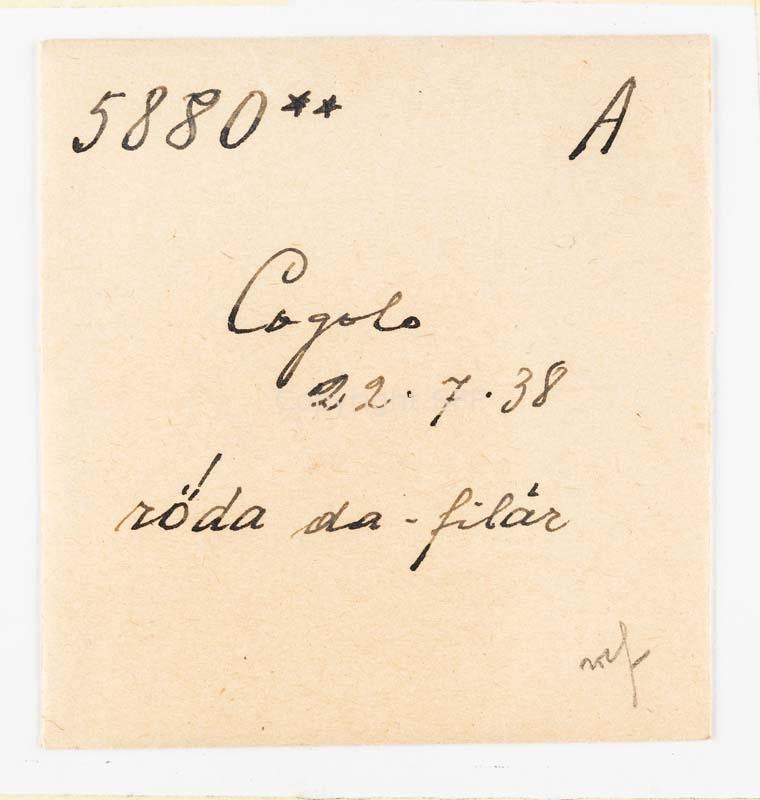 5880** A
Cogolo
22.7.38
rö́da da-filár